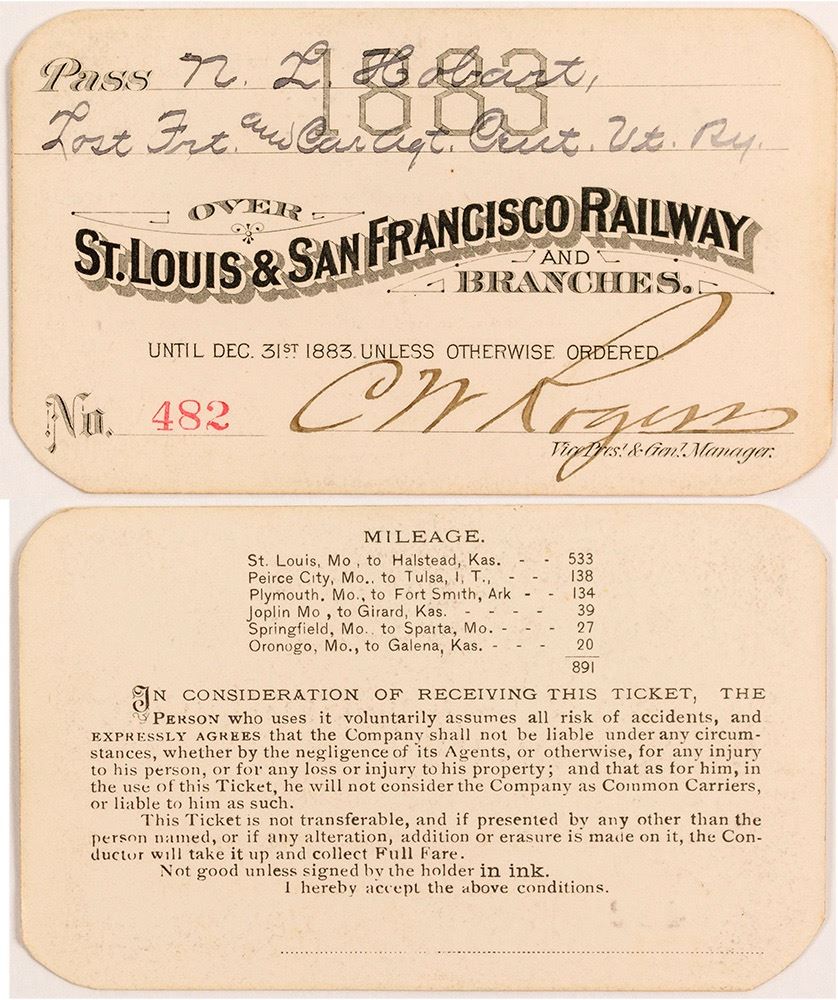 1883
Pass N. L. Hobart,
Lost Frt. and Car Agt. Cent. Vt. Ry.
OVER
ST. LOUIS & SAN FRANCISCO RAILWAY
AND
BRANCHES.
UNTIL DEC. 31ST 1883. UNLESS OTHERWISE ORDERED.
No. 482 C W Rogers
Vice Prest. & Genl. Manager.
MILEAGE.
St. Louis, Mo., to Halstead, Kas. - - 533
Peirce City, Mo., to Tulsa, I. T., - - 138
Plymouth, Mo., to Fort Smith, Ark - - 134
Joplin Mo., to Girard, Kas. - - - - 39
Springfield, Mo., to Sparta, Mo. - - - 27
Oronogo, Mo., to Galena, Kas. - - - 20
891
IN CONSIDERATION OF RECEIVING THIS TICKET, THE
PERSON who uses it voluntarily assumes all risk of accidents, and
EXPRESSLY AGREES that the Company shall not be liable under any circum-
stances, whether by the negligence of its Agents, or otherwise, for any injury
to his person, or for any loss or injury to his property; and that as for him, in
the use of this Ticket, he will not consider the Company as Common Carriers,
or liable to him as such.
This Ticket is not transferable, and if presented by any other than the
person named, or if any alteration, addition or erasure is made on it, the Con-
ductor will take it up and collect Full Fare.
Not good unless signed by the holder in ink.
I hereby accept the above conditions.